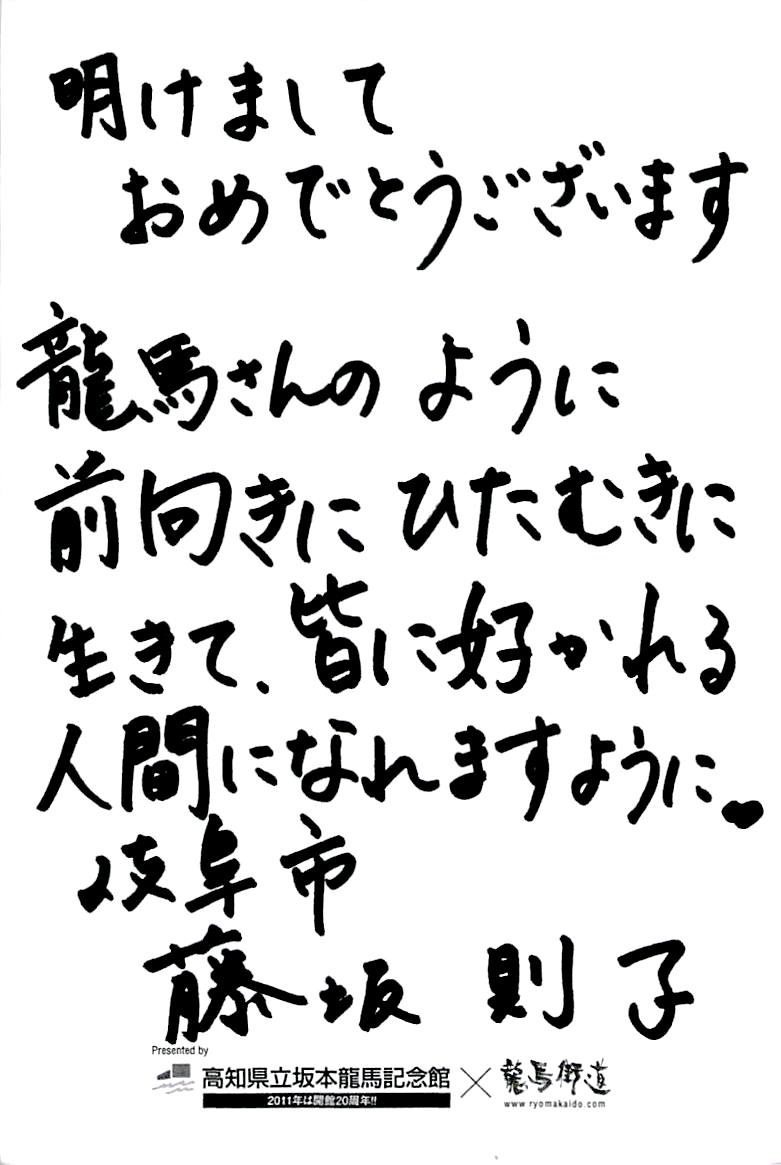 明けまして
おめでとうございます
龍馬さんのように
前向きにひたむきに
生きて、皆に好かれる
人間になれますように
岐阜市
藤坂 則子
Presented by
高知県立坂本龍馬記念館 × 龍馬街道
2011年は開館20周年!! www.ryomakaido.com